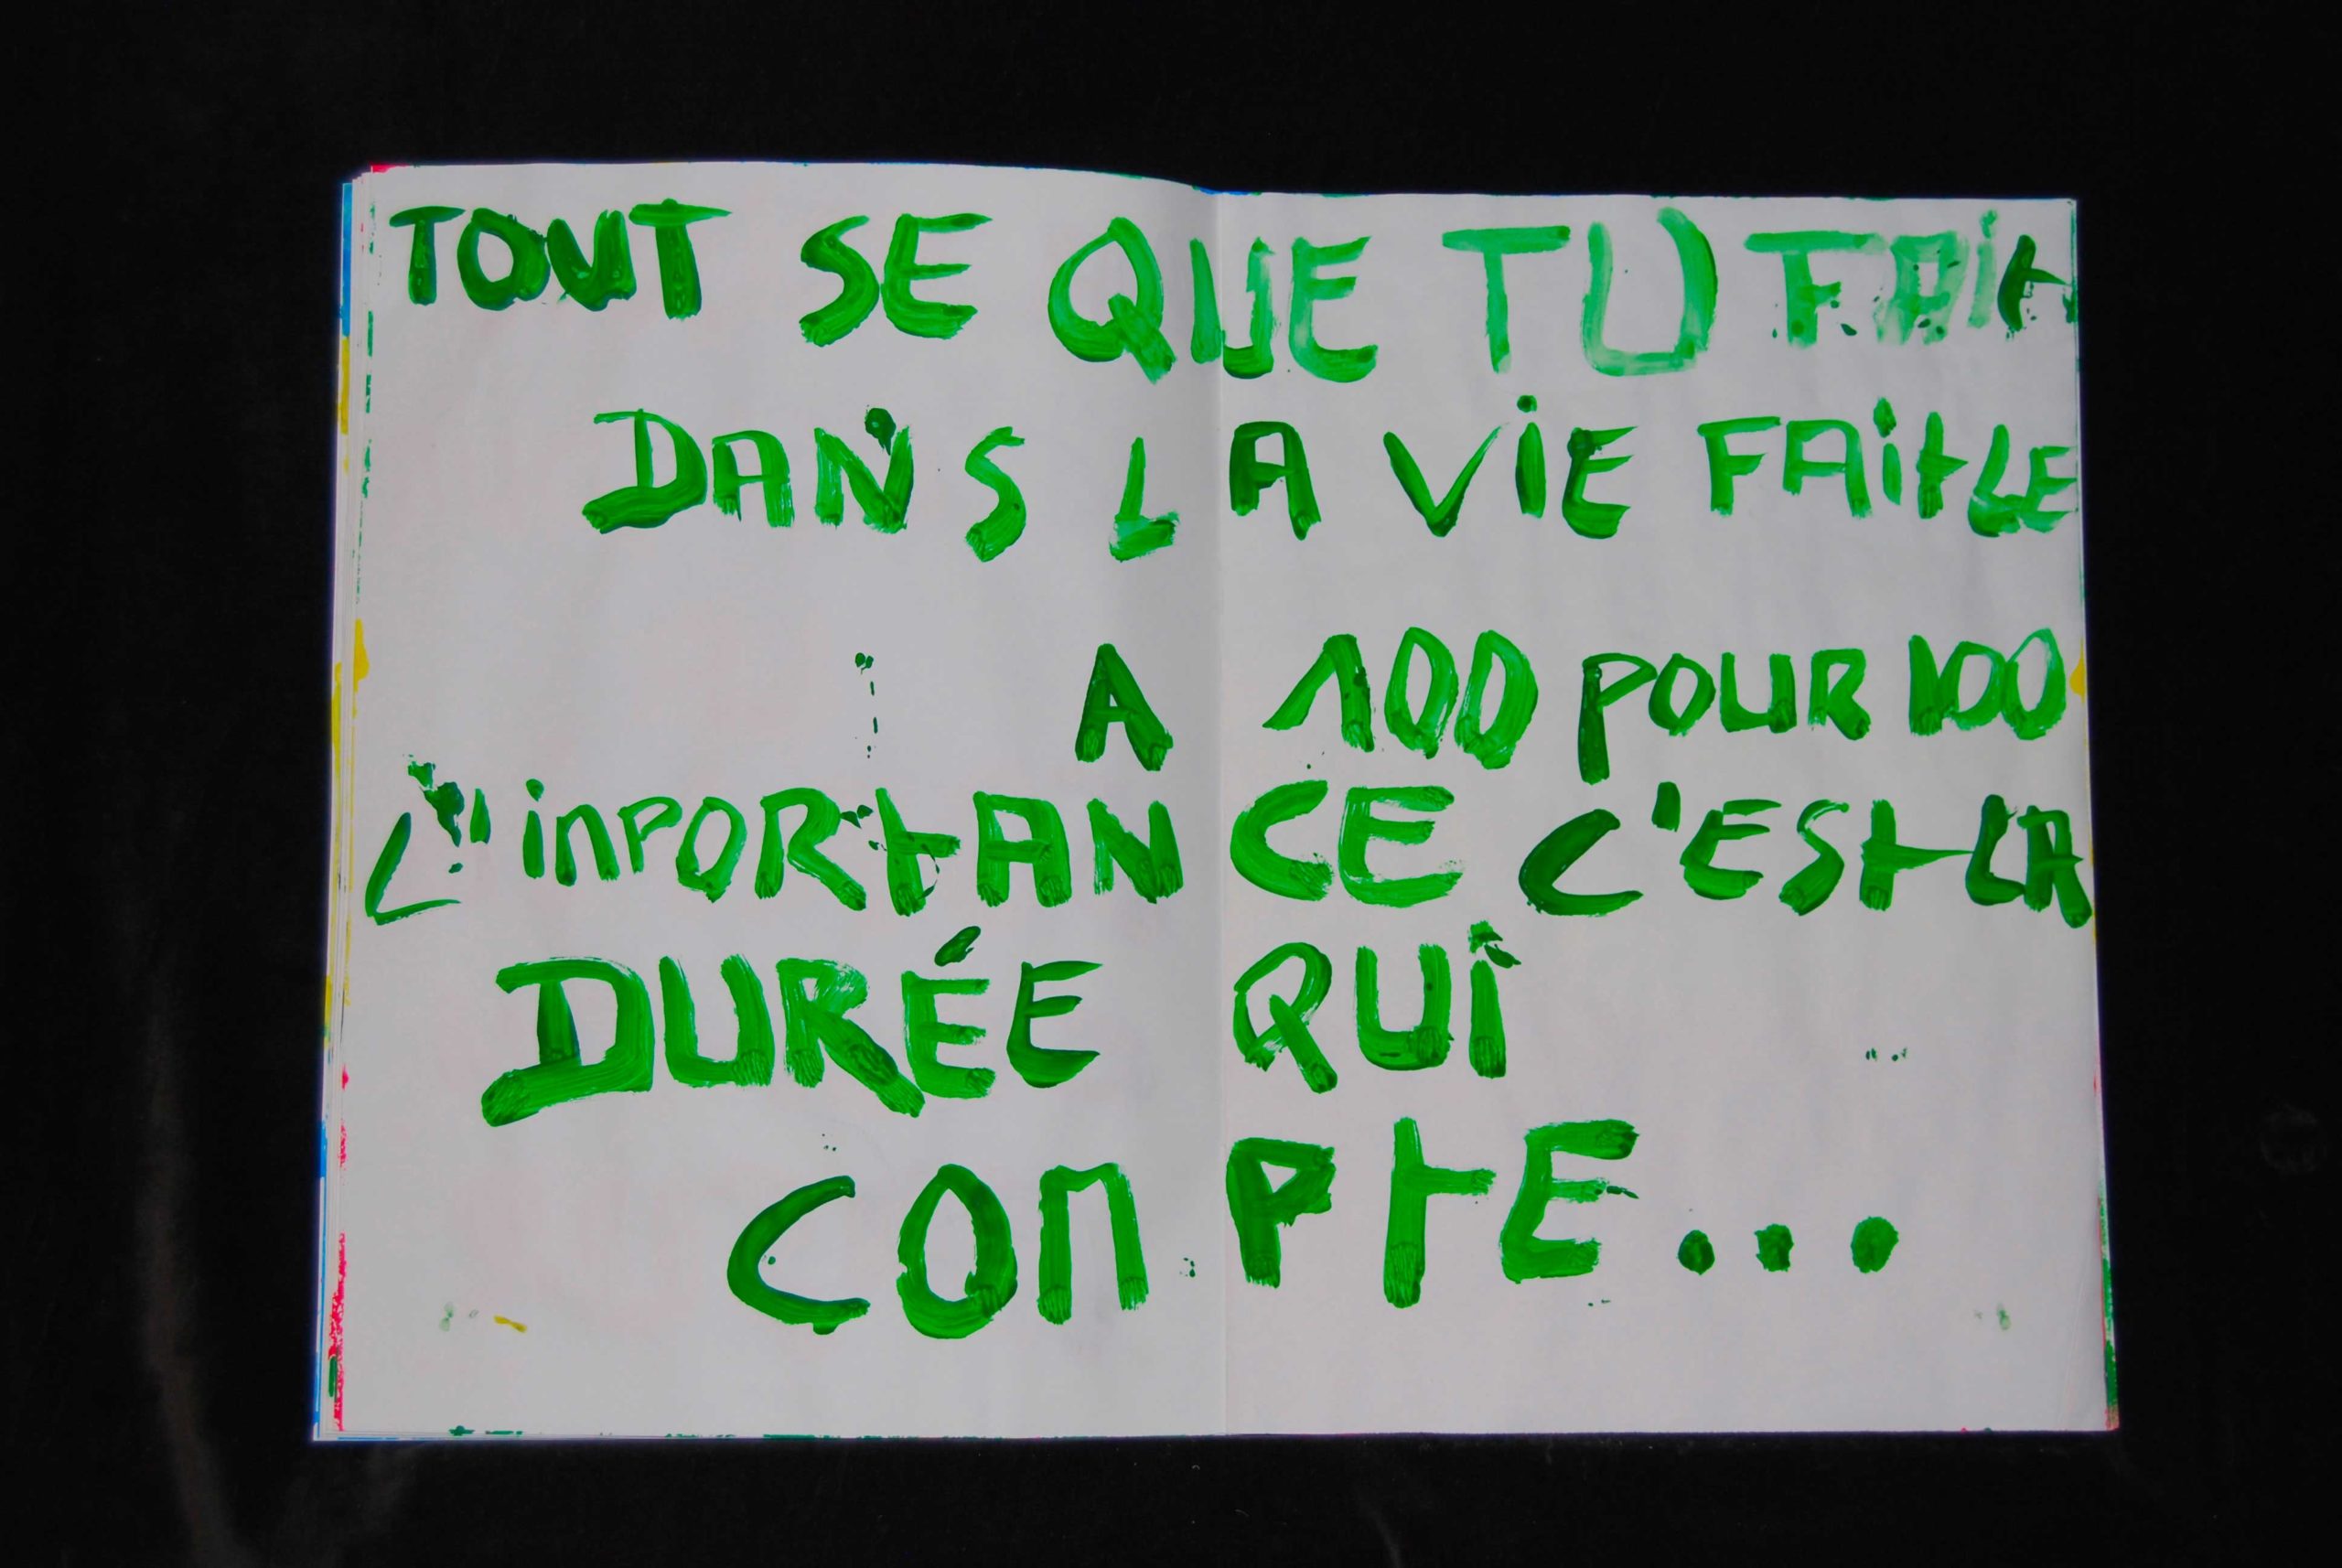 TOUT SE QUE TU FAit
DANS LA ViE FAit LE
A 100 POUR 100
L'inPORtANCE C'ESt LA
DURÉE QUi
COnPtE...